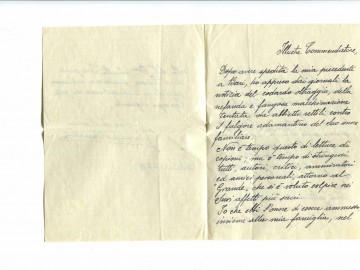 Illustre Commendatore,
Dopo avere spedita la mia precedente
a Bari, ho appreso dai giornali la
notizia del codardo oltraggio, della
nefanda e fangosa macchinazione
tentata da abbietti rettili contro
il fulgore adamantino del Suo nome
familiare.
Non è tempo questo di letture di
copioni; ma è tempo di stringerci
tutti, autori, critici, ammiratori
ed amici personali, attorno al
Grande, che si è voluto colpire nei
Suoi affetti più sacri.
Io che ebbi l'onore di essere ammesso
insieme alla mia famiglia, nel